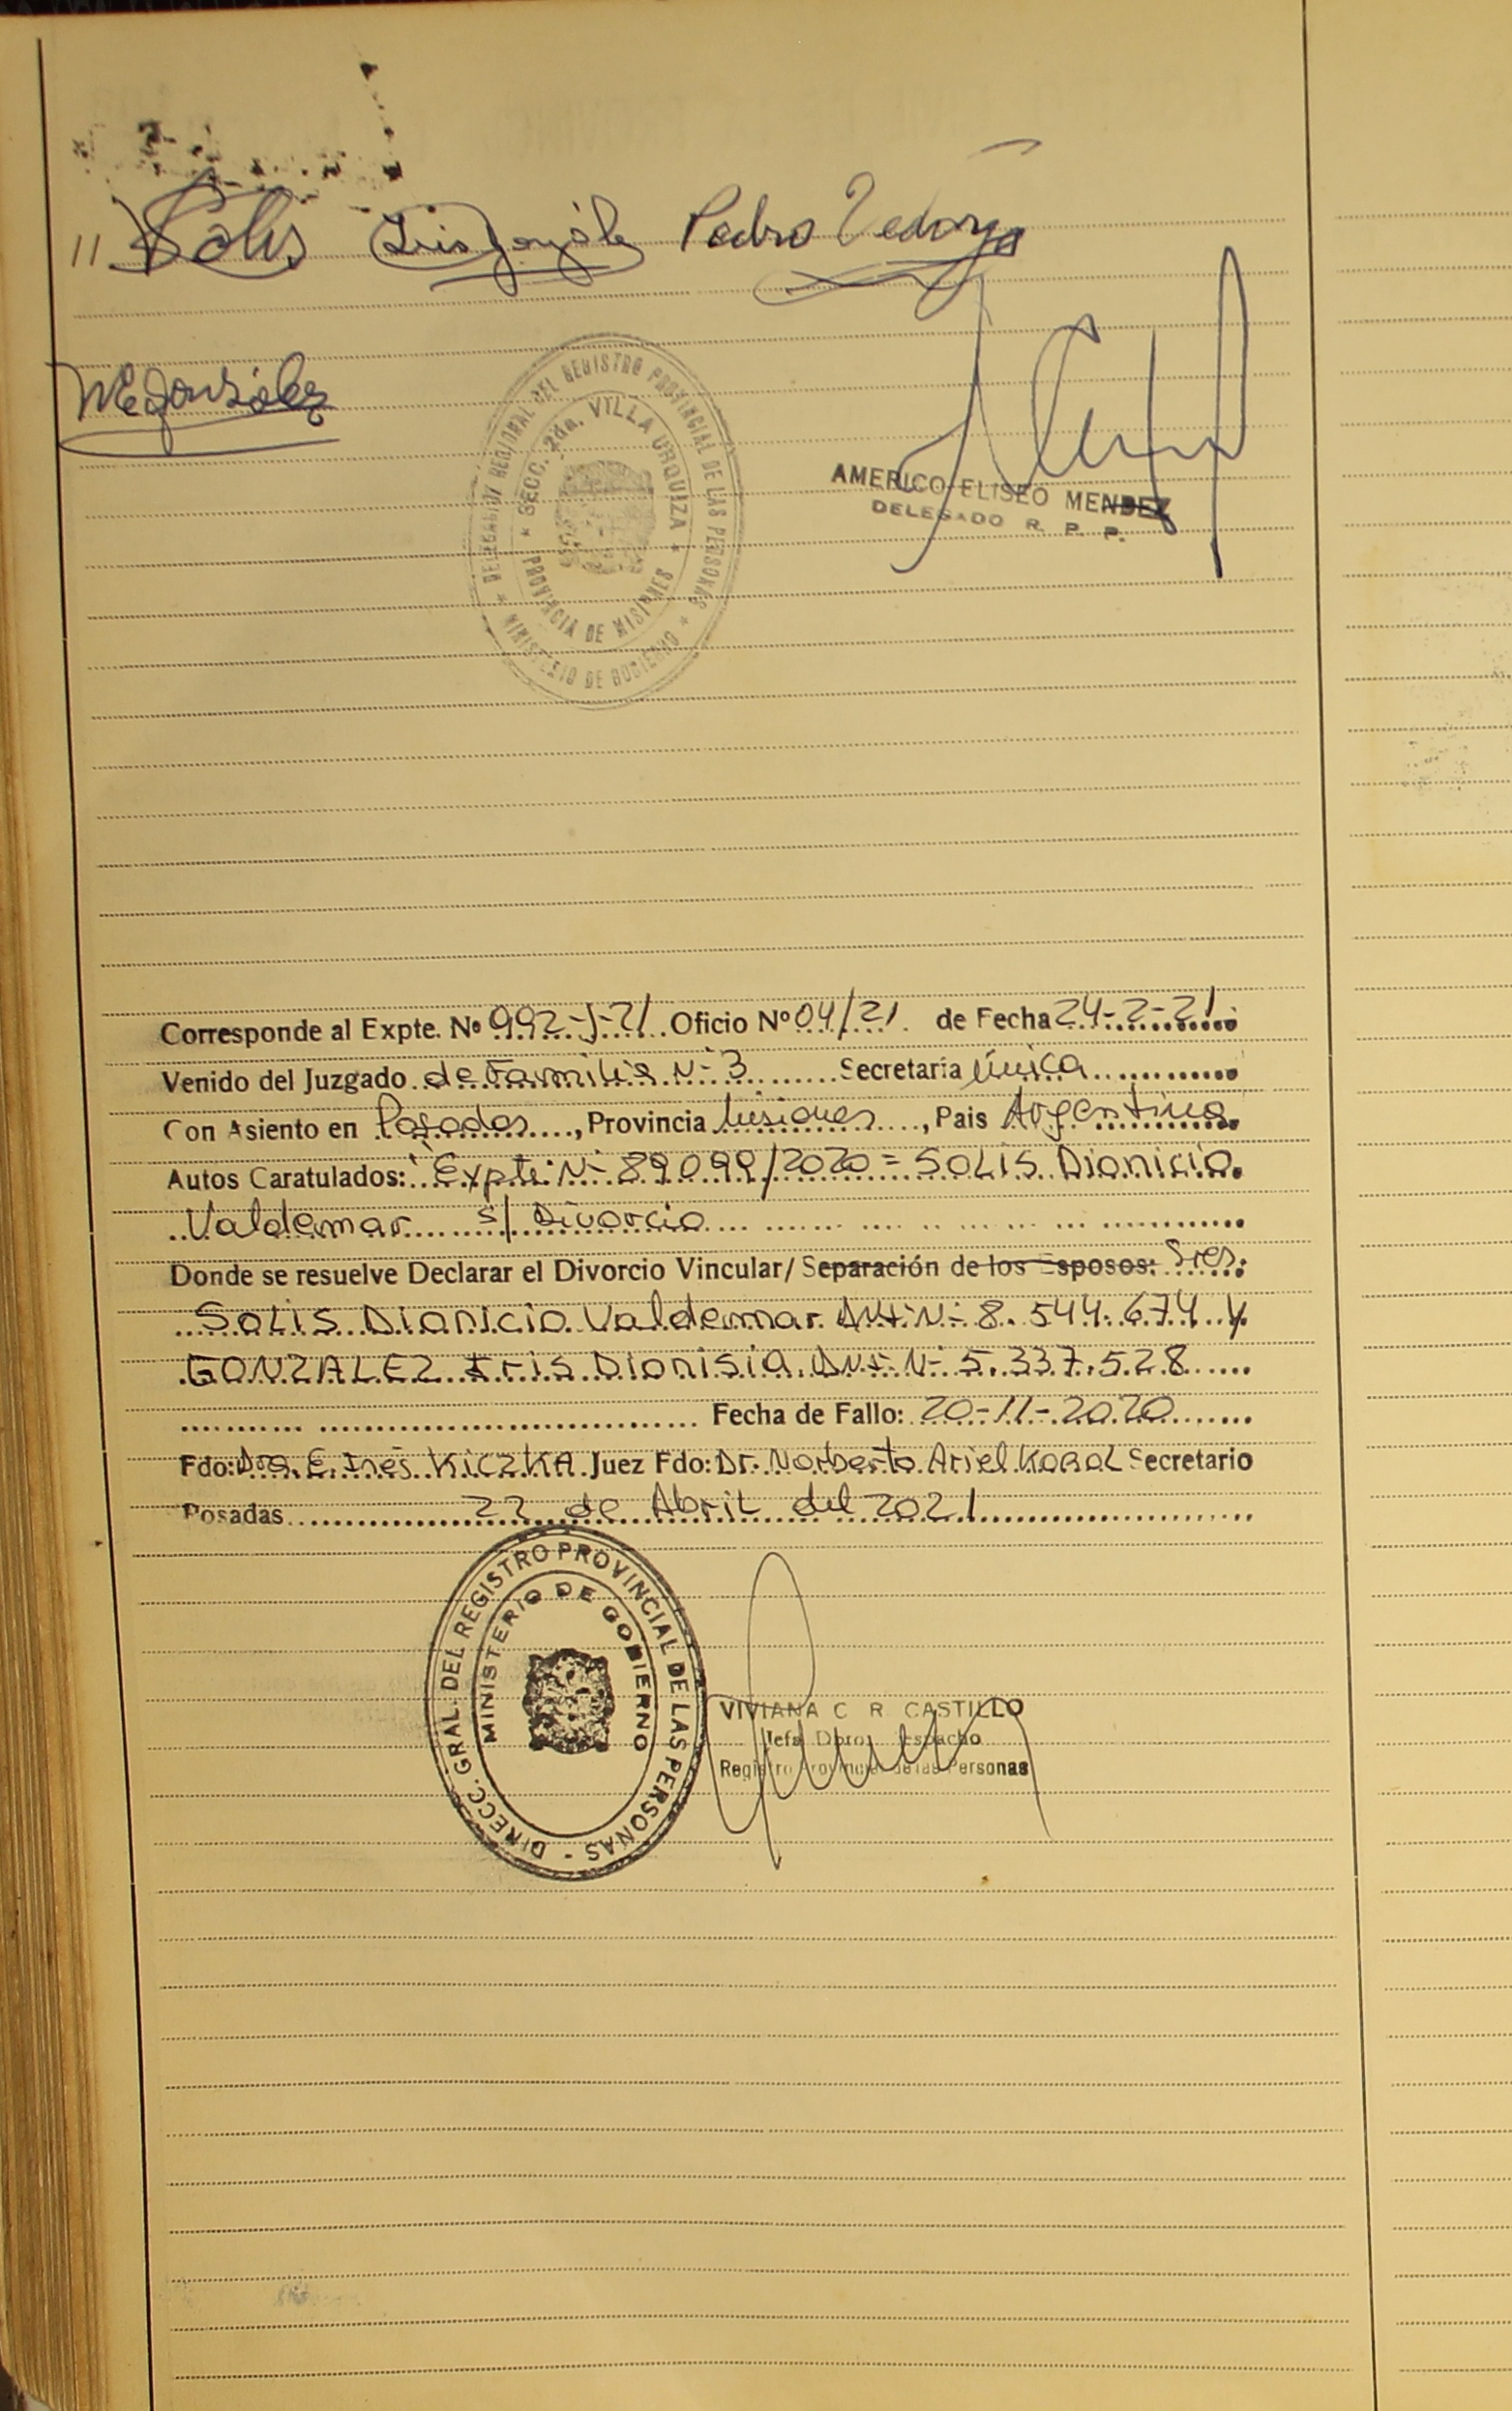 11 Solis Iris Gonzále Pedro Vedoya
MEGonzález
DELEGACION REGIONAL DEL REGISTRO PROVINCIAL DE LAS PERSONAS
* MINISTERIO DE GOBIERNO *
* SECC. 2da. VILLA URQUIZA *
PROVINCIA DE MISIONES
AMERICO ELISEO MENDEZ
DELEGADO R. P. P.
Corresponde al Expte. Nº 992-J-21 Oficio Nº 04/21 de Fecha 24-2-21
Venido del Juzgado de Familia Nº 3 Secretaria única
Con Asiento en Posadas, Provincia Misiones, Pais Argentina
Autos Caratulados: "Expte Nº 89099/2020 = SOLIS Dionicio
Valdemar s/ Divorcio
Donde se resuelve Declarar el Divorcio Vincular/ Separación de los Esposos: Sres.
SOLIS Dionicio Valdemar DNI Nº 8.544.674 y
GONZALEZ Iris Dionisia DNI Nº 5.337.528
Fecha de Fallo: 20-11-2020
Fdo: Dra. E. Inés KICZKA Juez Fdo: Dr. Norberto Ariel KOROL Secretario
Posadas 22 de Abril del 2021
DIRECC. GRAL. DEL REGISTRO PROVINCIAL DE LAS PERSONAS -
MINISTERIO DE GOBIERNO
VIVIANA C R CASTILLO
Jefa Dpto. Despacho
Registro Provincial de las Personas